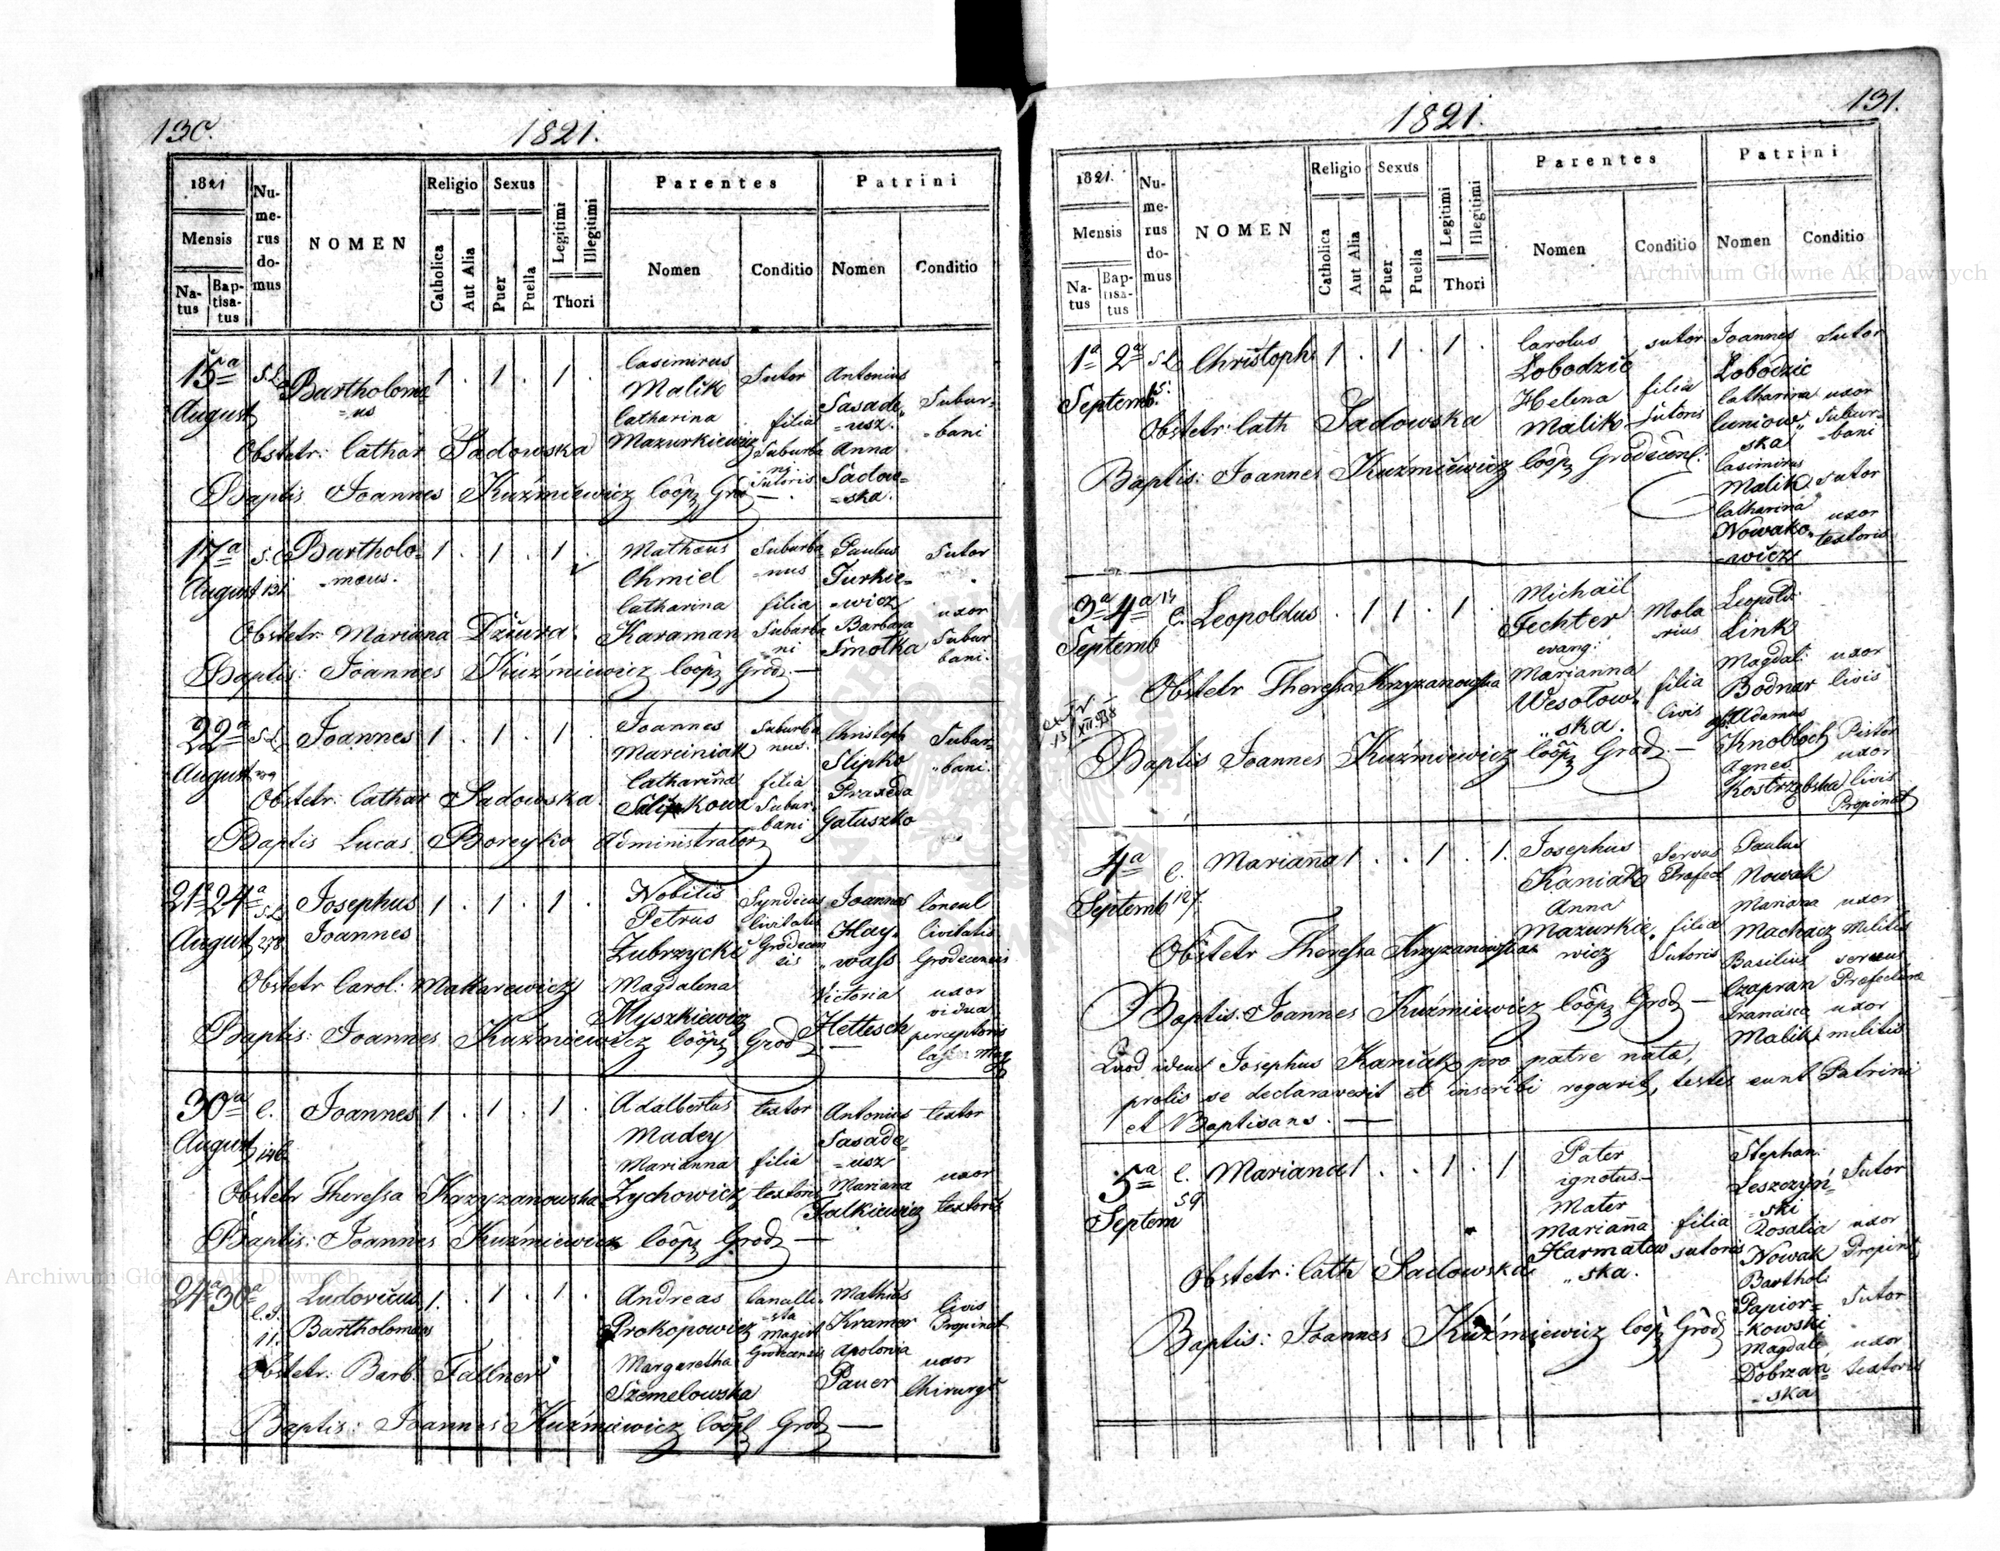 130.
1821.
1821
Mensis
Na-
tus
Bap-
tisa-
tus
Nu-
me-
rus
do-
mus
NOMEN
Religio
Catholica
Aut Alia
Sexus
Puer
Puella
Legitimi
Illegitimi
Thori
Parentes
Nomen
Conditio
Patrini
Nomen
Conditio
15a
August
Bartholome
=us
1 . 1 . 1 .
Casimirus
Malik
Catharina
Mazurkiewicz
Sutor
filia
Suburba
ni
Sutoris
Antonius
Sasade„
=usz.
Anna
Sadow=
=ska.
Subur=
=bani
Obstetr: Cathar Sadowska
Baptis Joannes Kuźmiewicz Coop Gro —.
17a
August 131
Bartholo=
=maus.
1 . 1 . 1 .
Matheus
Chmiel
Catharina
Karaman
Suburba
=nus
filia
Suburba
ni
Paulus
Turkie=
=wicz
Barbara
Smotka
Sutor
uxor
Subur
bani.
Obstetr: Mariana Dziura.
Baptis: Joannes Kuźmiewicz Coop Grod. —
22a
August
Joannes
1 . 1 . 1 .
Joannes
Marciniak
Catharina
Slipkowa
Suburba
nus.
filia
Subur.
bani
Christoph
Slipko
Praxeda
Gatuszko
Subur=
„bani.
Obstetr: Cathar Sadowska.
Baptis Lucas Boreyko Administrator
21a 24a
August, 278
Josephus
Joannes
1 . 1 . 1 .
Nobilis
Petrus
Zubrzycki
Magdalena
Myszkiewicz
Syndicus
Civitatis
Grodecen
sis
Joannes
Hay„
„wass
Victoria
Hettesch
—
Consul
Civitatis
Grodecensis
uxor
vidua
perceptoris
Obstetr Carol: Makarewicz
Baptis: Joannes Kuźmiewicz Coop Grod
30a
August 146
C.
Joannes
1 . 1 . 1 .
Adalbertus
Madey
Marianna
Zychowicz
textor
filia
textoris
Antonius
Sasade=
=usz
Mariana
Falkiewicz
textor
uxor
textoris
Obstetr Theressa Krzyzanowska
Baptis: Joannes Kuźmiewicz Coop Grod —
24a 30a
11.
Ludovicus
Bartholomeus
1 . 1 . 1 .
Andreas
Prokopowicz
Margaretha
Szemelowska
Cancelli„
sta
Magist
Grodecensis
Mathias
Kramer
Apolonia
Pauer
Civis
Propinat
uxor
Chirurgi
Obstetr: Barb. Fallner
Baptis: Joannes Kuźmiewicz Coop Grod —
131.
1821.
1821.
Mensis
Na-
tus
Bap-
tisa-
tus
Nu-
me-
rus
do-
mus
NOMEN
Religio
Catholica
Aut Alia
Sexus
Puer
Puella
Legitimi
Illegitimi
Thori
Parentes
Nomen
Conditio
Patrini
Nomen
Conditio
1a 2a
Septemb.
Christoph:
1 . 1 . 1 .
Carolus
Lobodzic
Helena
Malik
sutor
filia
Sutoris
Joannes
Lobodzic
Catharina
Cuniow„
ska
Casimirus
Malik
Catharina
Nowako„
=wicz
Sutor
uxor
Subur=
=bani
Sutor
uxor
textoris
Obstetr: Cath Sadowska
Baptis: Joannes Kuźmiewicz Coop Grodecens:
3a 4a
Septemb
14
C.
Leopoldus
. 1 1 . 1 .
Michail
Fechter
evang:
Marianna
Wesolow„
„ska.
Mola
=rius
filia
Civis
Leopold:
Link
Magdal:
Bodnar
Adamus
Knobloch
Agnes
Kostrzebska
uxor
Civis
Pistor
uxor
Civis
Propinat
Obstetr Theressa Krzyzanowska
Baptis Joannes Kuźmiewicz Coop Grod. —
4a
Septemb 127.
C.
Mariana
1 . . 1 . 1.
Josephus
Kaniak
Anna
Mazurkie„
wicz
Servus
Praefect
filia
Sutoris
Paulus
Nowak
Mariana
Machacz
Basilius
Czapran
Francisca
Malik
uxor
Militis
servus
Praefecturae
uxor
militis
Obstetr Theressa Krzyzanowska
Baptis: Joannes Kuźmiewicz Coop Grod —
Quod idem Josephus Kaniak pro patre natae,
prolis se declaraverit et inscribi rogarit, testes sunt Patrini
et Baptisans. —
5a
Septem
C.
59
Mariana
1 . . 1 . 1
Pater
ignotus—
Mater
Mariana
Harmatow
„ska.
filia
sutoris
Stephan:
Leszczyń=
=ski
Rosalia
Nowak
Barthol:
Papior=
=kowski
Magdale
Dobrzań=
=ska
Sutor
uxor
Propinat,
Sutor
uxor
textoris
Obstetr: Cath Sadowska
Baptis: Joannes Kuźmiewicz Coop Grod
Archiwum Główne Akt Dawnych
Archiwum Główne Akt Dawnych